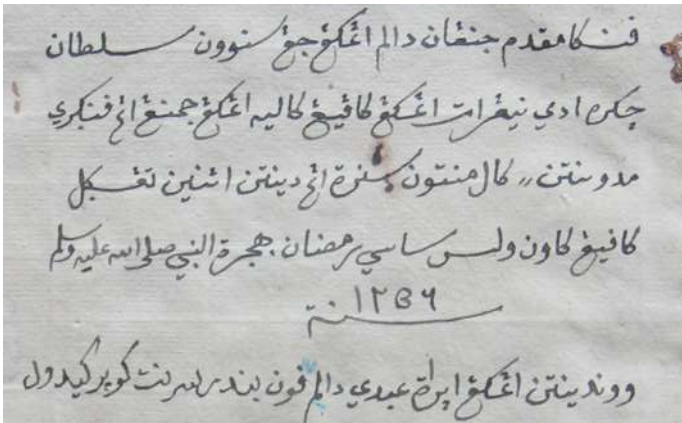 فنكا مقدم جنڠان دالم اڠكڠ جڠ سنوون سلطان
چكره ادي نيڠرات اڠكڠ كافيڠ كاليه اڠكڠ جمنڠ اڠ فنكري
كال منتون سرة اڠ دينتن اثنين تڠكل
كافيڠ كاون ولس ساسي رمضان هجرة النبي صلى الله عليه وسلم
سنة ١٢٥٦
ووندينتن اڠكڠ عبدي دالم فون بندر كيدول